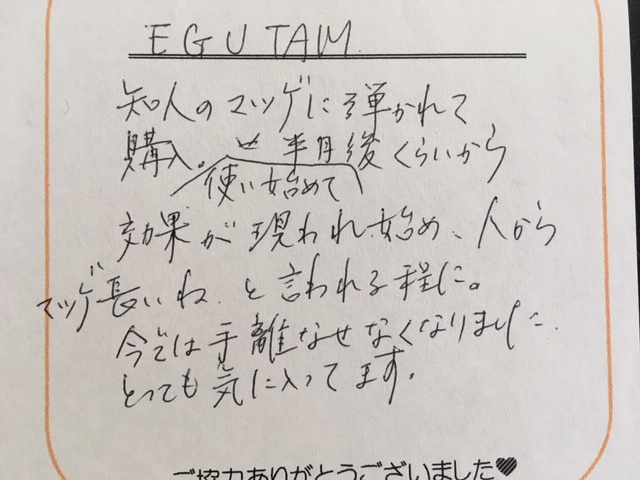 EGUTAM
知人のマツゲに弾かれて
購入。半月後くらいから
使い始めて
効果が現われ始め、人から
マツゲ長いね、と言われる程に。
今では手離なせなくなりました.
とっても気に入ってます。
ご協力ありがとうございました♥